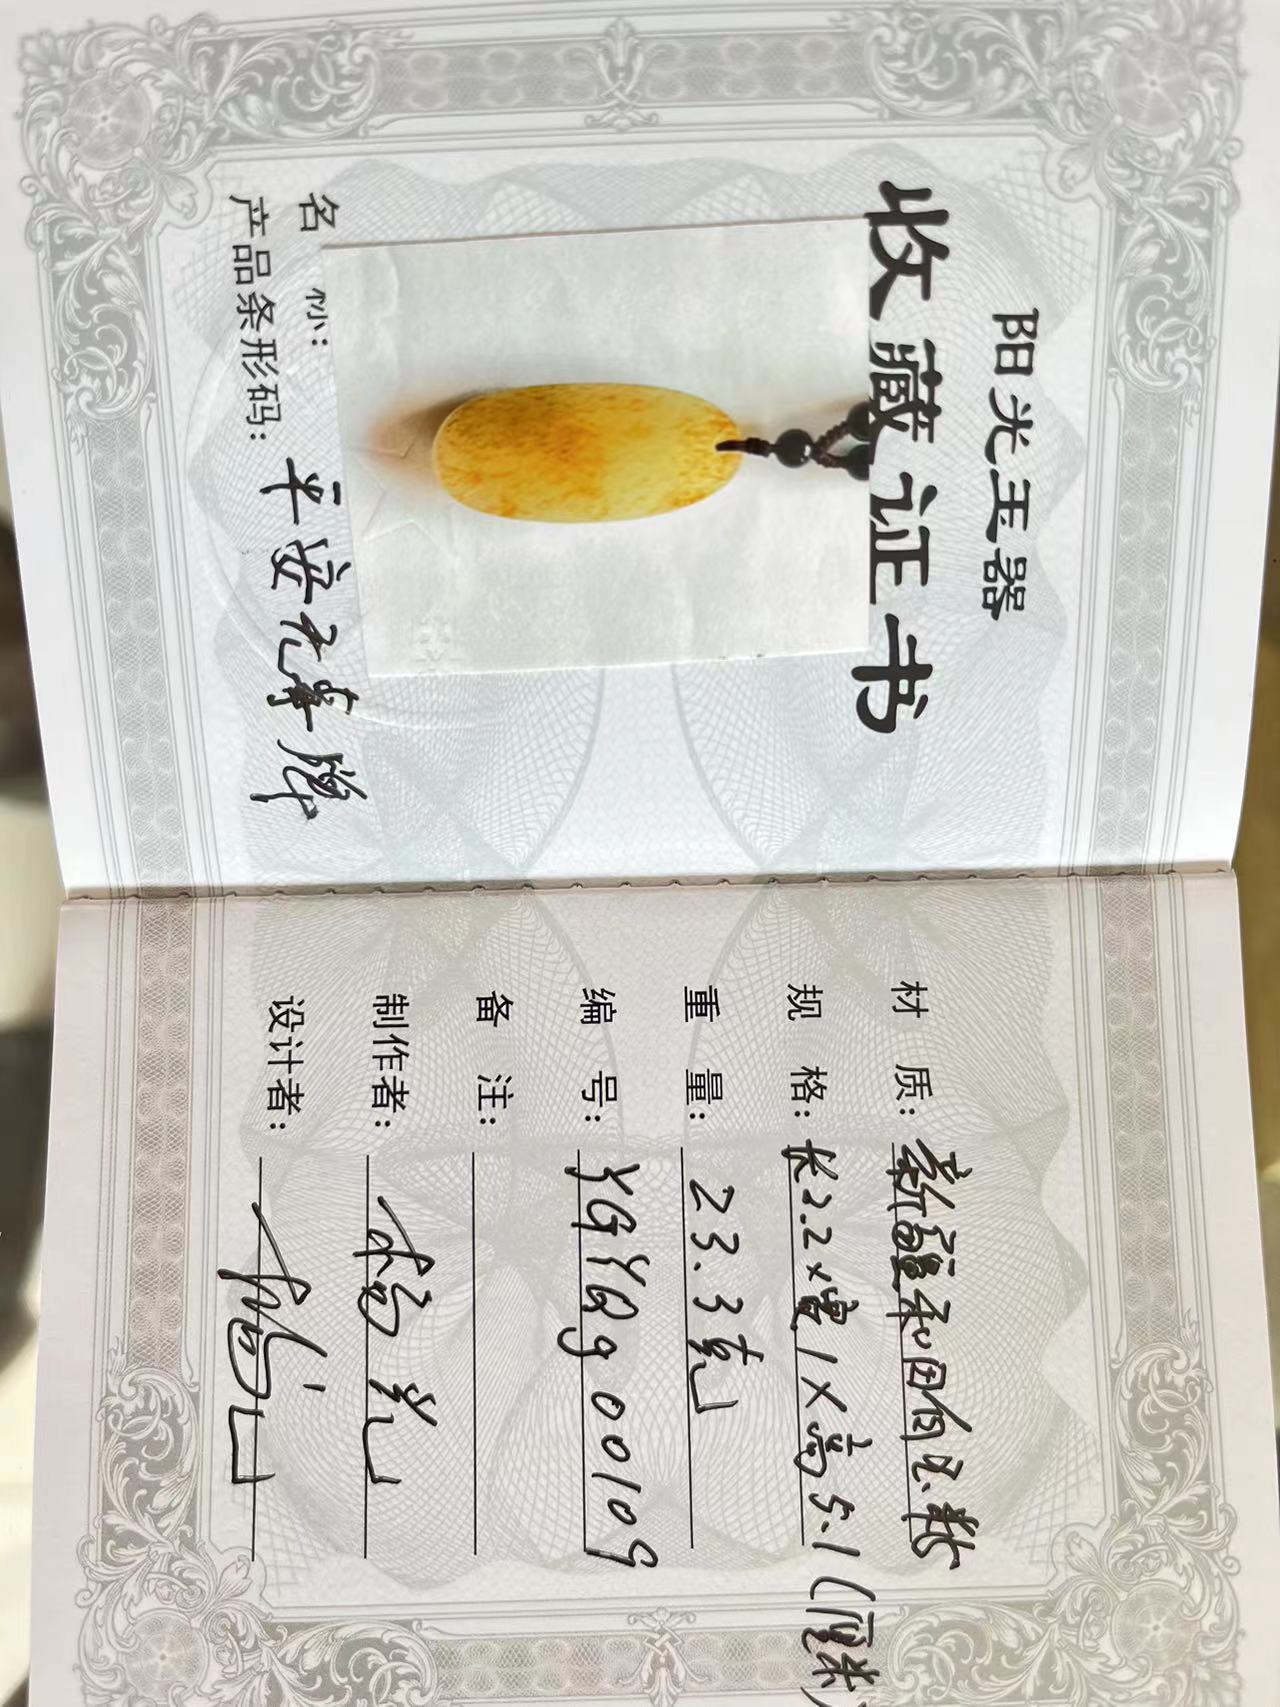 阳光玉器
收藏证书
名 称:
产品条形码:
平安无事牌
材 质: 新疆和田白玉籽
规 格: 长2.2×宽1×高5.1(厘米)
重 量: 23.3克
编 号: YGYQg00109
备 注:
制作者:
设计者: